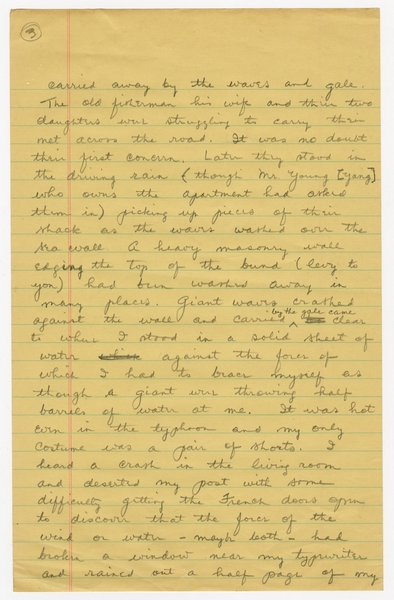 3
carried away by the waves and gale.
The old fisherman his wife and their two
daughters were struggling to carry their
net across the road. It was no doubt
their first concern. Later they stood in
the driving rain (though Mr. Young [Yang]
who owns the apartment had asked
them in) picking up pieces of their
shack as the waves washed over the
sea wall. A heavy masonry wall
edging the top of the bund (levy to
you) had been washed away in
many places. Giant waves crashed
against the wall and carried by the gale came clear
to where I stood in a solid sheet of
water against the force of
which I had to brace myself as
though a giant were throwing half
barrels of water at me. It was hot
even in the typhoon and my only
costume was a pair of shorts. I
heard a crash in the living room
and deserted my post with some
difficulty getting the French doors open
to discover that the force of the
wind or water - maybe both - had
broken a window near my typewriter
and rained out a half page of my